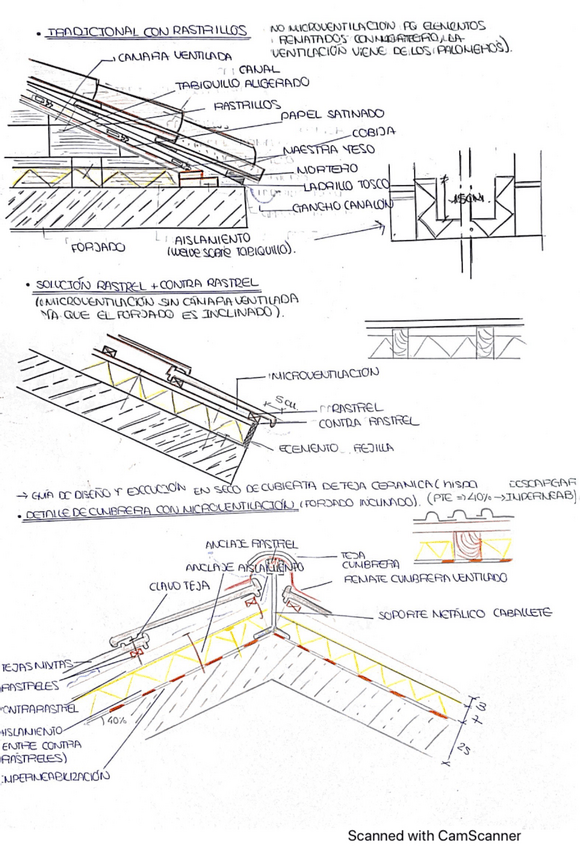 • TRADICIONAL CON RASTRILLOS
NO MICROVENTILACION PQ ELEMENTOS
REMATADOS CON MORTERO, LA
VENTILACIÓN VIENE DE LOS PALOMEROS).
CAMARA VENTILADA
CANAL
TABIQUILLO ALIGERADO
RASTRILLOS
PAPEL SATINADO
COBIJA
MAESTRA YESO
MORTERO
LADRILLO TOSCO
GANCHO CANALON
15CM.
FORJADO
AISLAMIENTO
TABIQUILLO).
• SOLUCIÓN RASTREL + CONTRA RASTREL
(MICROVENTILACIÓN SIN CÁMARA VENTILADA
YA QUE EL FORJADO ES INCLINADO).
MICROVENTILACIÓN
5CM
RASTREL
CONTRA RASTREL
REJILLA
→ GUÍA DE DISEÑO Y EJECUCIÓN EN SECO DE CUBIERTA DE TEJA CERAMICA ( DESCARGAR
• DETALLE DE CUMBRERA CON MICROVENTILACIÓN (FORJADO INCLINADO). (PTE => 40% → IMPERMEAB)
ANCLAJE RASTREL
ANCLAJE AISLAMIENTO
TEJA
CUMBRERA
REMATE CUMBRERA VENTILADO
CLAVO TEJA
SOPORTE METÁLICO CABALLETE
TEJAS MIXTAS
RASTRELES
CONTRARASTREL
AISLAMIENTO
(ENTRE CONTRA
RASTRELES)
IMPERMEABILIZACIÓN
40%
3
4
25
Scanned with CamScanner